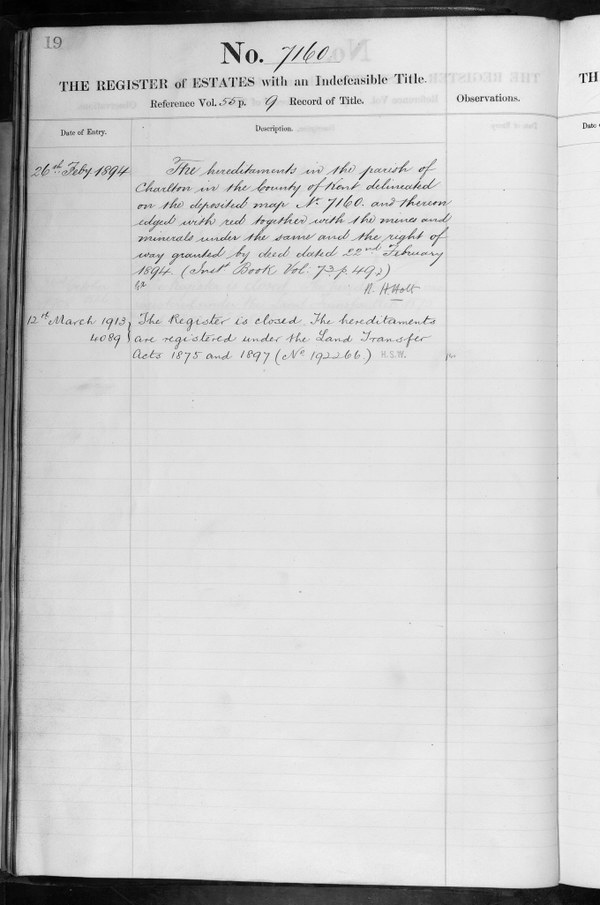 19
No. 7160
THE REGISTER of ESTATES with an Indefeasible Title.
Reference Vol. 55 p. 9 Record of Title.
Observations.
Date of Entry.
Description.
26th Feby 1894
The hereditaments in the parish of
Charlton in the County of Kent delineated
on the deposited map No. 7160. and thereon
edged with red together with the mines and
minerals under the same and the right of
way granted by deed dated 22nd February
1894 (Inst. Book Vol: 73 p. 492)
R. H. Holt
12th March 1913
4089
The Register is closed. The hereditaments
are registered under the Land Transfer
Acts 1875 and 1897 (No. 192266) H.S.W.
TH
Date